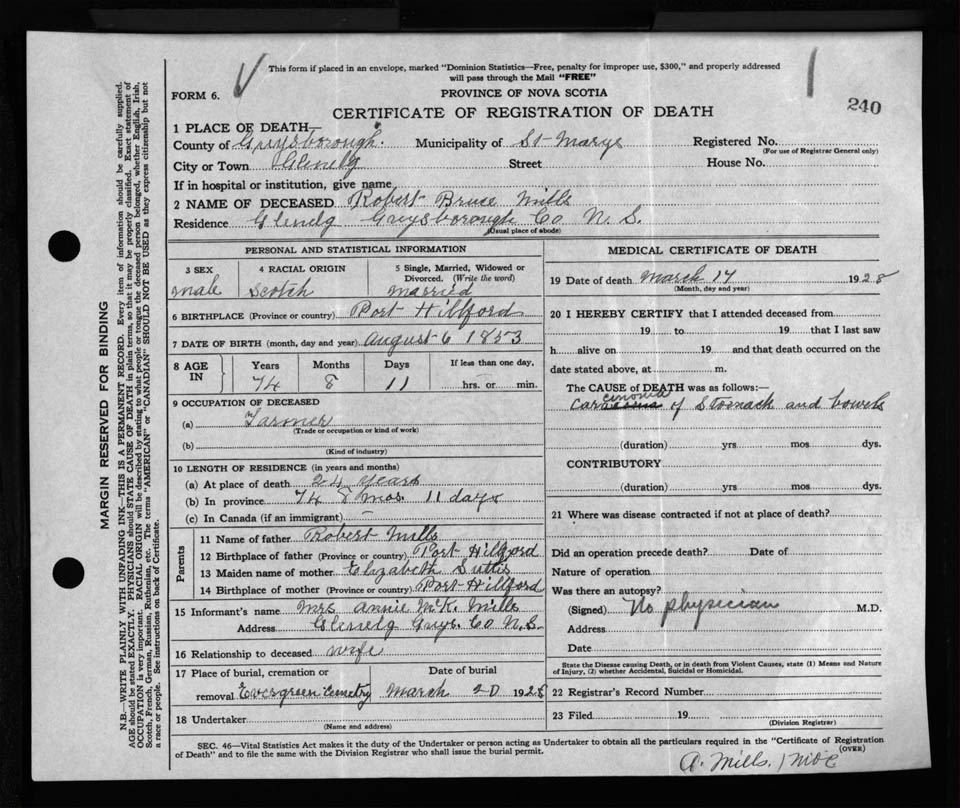 This form if placed in an envelope, marked "Dominion Statistics—Free, penalty for improper use, $300," and properly addressed
will pass through the Mail "FREE"
FORM 6.
PROVINCE OF NOVA SCOTIA
240
CERTIFICATE OF REGISTRATION OF DEATH
1 PLACE OF DEATH—
County of Guysborough. Municipality of St Marys Registered No.
(For use of Registrar General only)
City or Town Glenelg Street House No.
If in hospital or institution, give name
2 NAME OF DECEASED Robert Bruce Mills
Residence Glenelg Guysborough Co N. S.
(Usual place of abode)
PERSONAL AND STATISTICAL INFORMATION
3 SEX 4 RACIAL ORIGIN 5 Single, Married, Widowed or
Divorced. (Write the word)
male Scotch married
6 BIRTHPLACE (Province or country) Port Hillford
7 DATE OF BIRTH (month, day and year) August 6 1853
8 AGE IN Years Months Days If less than one day,
74 8 11 hrs. or min.
9 OCCUPATION OF DECEASED
(a) Farmer
(Trade or occupation or kind of work)
(b)
(Kind of industry)
10 LENGTH OF RESIDENCE (in years and months)
(a) At place of death 24 years
(b) In province 74 8 mos. 11 days
(c) In Canada (if an immigrant) –
Parents
11 Name of father Robert Mills
12 Birthplace of father (Province or country) Port Hilford
13 Maiden name of mother Elizabeth
14 Birthplace of mother (Province or country) Port Hillford
15 Informant's name Mrs Annie McK. Mills
Address Glenelg Guys. Co N.S.
16 Relationship to deceased wife
17 Place of burial, cremation or Date of burial
removal Evergreen Cemetry March 20 1928
18 Undertaker
(Name and address)
MEDICAL CERTIFICATE OF DEATH
19 Date of death March 17 1928
(Month, day and year)
20 I HEREBY CERTIFY that I attended deceased from
19 to 19 that I last saw
h alive on 19 and that death occurred on the
date stated above, at m.
The CAUSE of DEATH was as follows:—
of Stomach and bowels
(duration) yrs. mos. dys.
CONTRIBUTORY
(duration) yrs. mos. dys.
21 Where was disease contracted if not at place of death?
Did an operation precede death? Date of
Nature of operation
Was there an autopsy?
(Signed) No physician M.D.
Address
Date
State the Disease causing Death, or in death from Violent Causes, state (1) Means and Nature
of Injury, (2) whether Accidental, Suicidal or Homicidal.
22 Registrar's Record Number
23 Filed 19
(Division Registrar)
SEC. 46—Vital Statistics Act makes it the duty of the Undertaker or person acting as Undertaker to obtain all the particulars required in the "Certificate of Registration
of Death" and to file the same with the Division Registrar who shall issue the burial permit.
(OVER)
A. Mills.
MARGIN RESERVED FOR BINDING
N.B.—WRITE PLAINLY WITH UNFADING INK—THIS IS A PERMANENT RECORD. Every item of information should be carefully supplied.
AGE should be stated EXACTLY. PHYSICIANS should STATE CAUSE OF DEATH in plain terms, so that it may be properly classified. Exact statement of
OCCUPATION is very important. RACIAL ORIGIN will be described by stating to what people or tongue the deceased person belonged, whether English, Irish,
Scotch, French, German, Russian, Ruthenian, etc. The terms "AMERICAN" or "CANADIAN" SHOULD NOT BE USED as they express citizenship but not
a race or people. See instructions on back of Certificate.